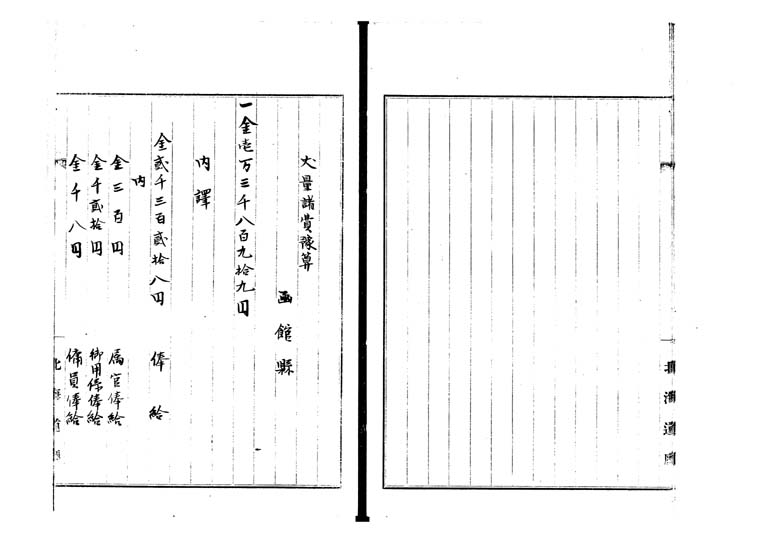 丈量諸費豫算
函館縣
一金壱万三千八百九拾九円
内譯
金貳千三百貳拾八円 俸給
内
金三百円 属官俸給
金千貳拾円 御用係俸給
金千八円 傭員俸給
北海道